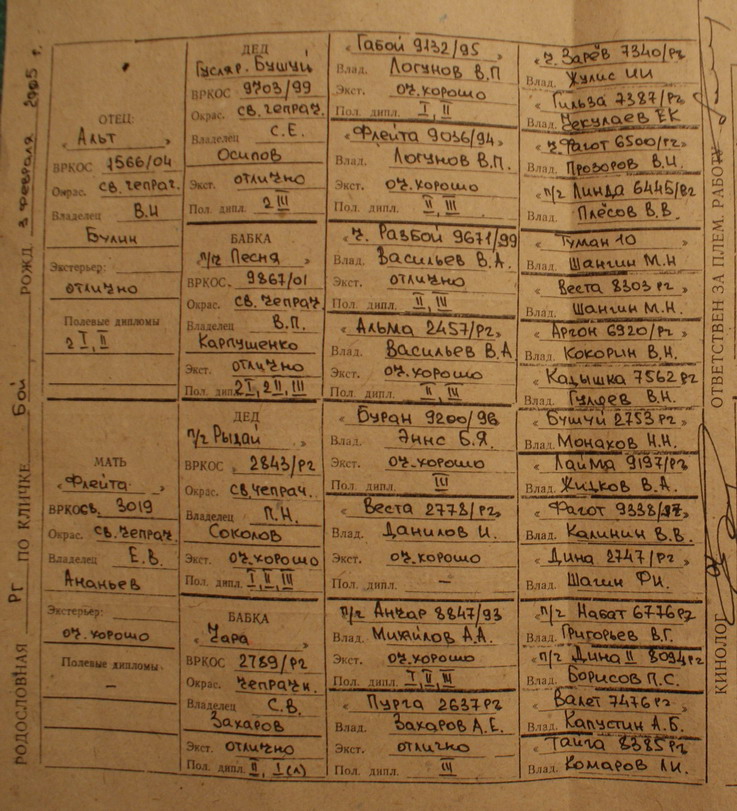 РОДОСЛОВНАЯ РГ ПО КЛИЧКЕ Бой РОЖД. 3 февраля 2005 г.
ОТЕЦ:
"Альт"
ВРКОС 1566/04
Окрас. св. чепрач.
Владелец В.И
Булин
Экстерьер:
отлично
Полевые дипломы
2 I, II
МАТЬ
"Флейта"
ВРКОСв. 3019
Окрас. св. чепрач.
Владелец Е.В.
Ананьев
Экстерьер:
оч. хорошо
Полевые дипломы.
–
ДЕД
Гусляр. Бушуй
ВРКОС 9703/99
Окрас. св. чепрач.
Владелец С.Е.
Осипов
Экст. отлично
Пол. дипл. 2 III
БАБКА
п/г Песня
ВРКОС. 9867/01
Окрас. св. чепрач.
Владелец В.П.
Карпушенко
Экст. отлично
Пол. дипл. 2I, 2II, III
ДЕД
п/г Рыдай
ВРКОС 2843/рг
Окрас. св. чепрач.
Владелец П.Н.
Соколов
Экст. оч. хорошо
Пол. дипл. I, II, III
БАБКА
"Чара"
ВРКОС 2789/рг
Окрас. чепрачн.
Владелец С.В.
Захаров
Экст. отлично
Пол. дипл. II, I(л)
"Габой 9132/95
Влад. Логунов В.П
Экст. оч. хорошо
Пол. дипл. I, II
"Флейта 9036/94"
Влад. Логунов В.П.
Экст. оч. хорошо
Пол. дипл. II, III
"ч. Разбой 9671/99
Влад. Васильев В.А.
Экст. отлично
Пол. дипл. II, III
"Альма 2457/рг"
Влад. Васильев В.А
Экст. оч. хорошо
Пол. дипл. II, III
"Буран 9200/98
Влад. Эннс Б.Я.
Экст. оч. хорошо
Пол. дипл. III
"Веста 2778/рг"
Влад. Данилов И.
Экст. оч. хорошо
Пол. дипл. –
п/г Анчар 8847/93
Влад. Михайлов А.А.
Экст. оч. хорошо
Пол. дипл. I, II, III
"Пурга 2637рг
Влад. Захаров А.Е.
Экст. отлично
Пол. дипл. III
"ч. Зарёв 7340/рг
Влад. Жулис ИИ
"Гильза 7387/рг"
Влад. Чекулаев ЕК
"ч. Фагот 6500/рг"
Влад. Прозоров В.И.
"п/г Линда 6445/вг
Влад. Плёсов В.В.
"Туман 10"
Влад. Шангин М.Н
"Веста 8303 рг"
Влад. Шангин М.Н.
"Аргон 6920/рг"
Влад. Кокорин В.Н.
"Кадышка 7562 рг
Влад. Гуляев В.Н.
"Бушуй 2753 рг"
Влад. Монахов Н.Н.
"Лайма 9197/рг
Влад. Жидков В.А.
"Фагот 9338/97"
Влад. Калинин В.В.
"Дина 2747/рг"
Влад. Шагин Ф.И.
"п/г Набат 6776рг
Влад. Григорьев В.Г.
"п/г Дина II 8094рг
Влад. Борисов П.С.
"Валет 7476 рг"
Влад. Капустин А.Б.
"Тайга 8385рг
Влад. Комаров Л.И.
ОТВЕТСТВЕН ЗА ПЛЕМ. РАБОТУ
КИНОЛОГ